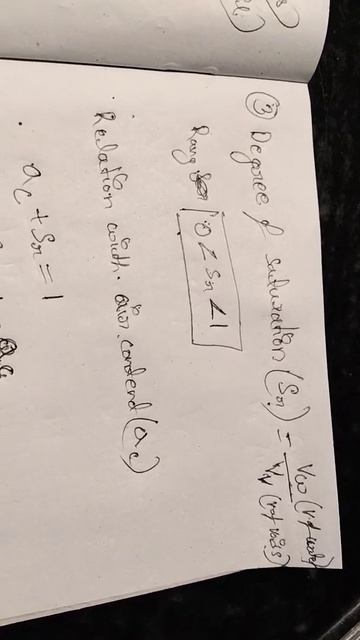 ③ Degree of saturation (Sr) = Vw (v of water) / Vv (v of voids)
Rang 0 < Sr < 1
Relation with air contend (ac)
ac + Sr = 1